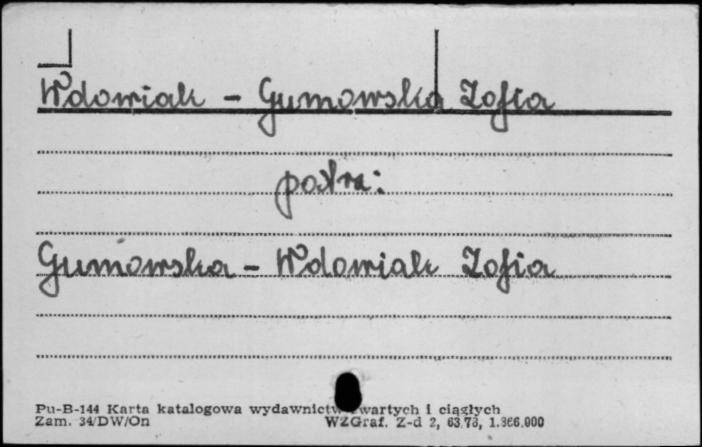 Wdowiak - Gumowska Zofia
patrz:
Gumowska - Wdowiak Zofia
Pu-B-144 Karta katalogowa wydawnictw zwartych i ciągłych
Zam. 34/DW/On WZGraf. Z-d 2, 63,73, 1.366.000